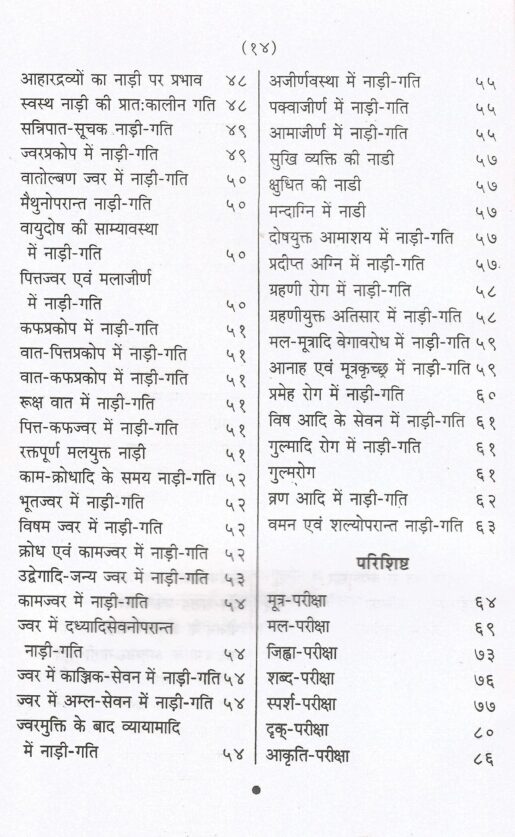 (१४)
आहारद्रव्यों का नाड़ी पर प्रभाव ४८
स्वस्थ नाड़ी की प्रात:कालीन गति ४८
सन्निपात-सूचक नाड़ी-गति ४९
ज्वरप्रकोप में नाड़ी-गति ४९
वातोल्बण ज्वर में नाड़ी-गति ५०
मैथुनोपरान्त नाड़ी-गति ५०
वायुदोष की साम्यावस्था
में नाड़ी-गति ५०
पित्तज्वर एवं मलाजीर्ण
में नाड़ी-गति ५०
कफप्रकोप में नाड़ी-गति ५१
वात-पित्तप्रकोप में नाड़ी-गति ५१
वात-कफप्रकोप में नाड़ी-गति ५१
रूक्ष वात में नाड़ी-गति ५१
पित्त-कफज्वर में नाड़ी-गति ५१
रक्तपूर्ण मलयुक्त नाड़ी ५१
काम-क्रोधादि के समय नाड़ी-गति ५२
भूतज्वर में नाड़ी-गति ५२
विषम ज्वर में नाड़ी-गति ५२
क्रोध एवं कामज्वर में नाड़ी-गति ५२
उद्वेगादि-जन्य ज्वर में नाड़ी-गति ५३
कामज्वर में नाड़ी-गति ५४
ज्वर में दध्यादिसेवनोपरान्त
नाड़ी-गति ५४
ज्वर में काञ्जिक-सेवन में नाड़ी-गति ५४
ज्वर में अम्ल-सेवन में नाड़ी-गति ५४
ज्वरमुक्ति के बाद व्यायामादि
में नाड़ी-गति ५४
अजीर्णवस्था में नाड़ी-गति ५५
पक्वाजीर्ण में नाड़ी-गति ५५
आमाजीर्ण में नाड़ी-गति ५५
सुखि व्यक्ति की नाडी ५७
क्षुधित की नाडी ५७
मन्दाग्नि में नाडी ५७
दोषयुक्त आमाशय में नाड़ी-गति ५७
प्रदीप्त अग्नि में नाड़ी-गति ५७
ग्रहणी रोग में नाड़ी-गति ५८
ग्रहणीयुक्त अतिसार में नाड़ी-गति ५८
मल-मूत्रादि वेगावरोध में नाड़ी-गति ५९
आनाह एवं मूत्रकृच्छ्र में नाड़ी-गति ५९
प्रमेह रोग में नाड़ी-गति ६०
विष आदि के सेवन में नाड़ी-गति ६१
गुल्मादि रोग में नाड़ी-गति ६१
गुल्मरोग ६१
व्रण आदि में नाड़ी-गति ६२
वमन एवं शल्योपरान्त नाड़ी-गति ६३
परिशिष्ट
मूत्र-परीक्षा ६४
मल-परीक्षा ६९
जिह्वा-परीक्षा ७३
शब्द-परीक्षा ७६
स्पर्श-परीक्षा ७७
दृक्-परीक्षा ८०
आकृति-परीक्षा ८६